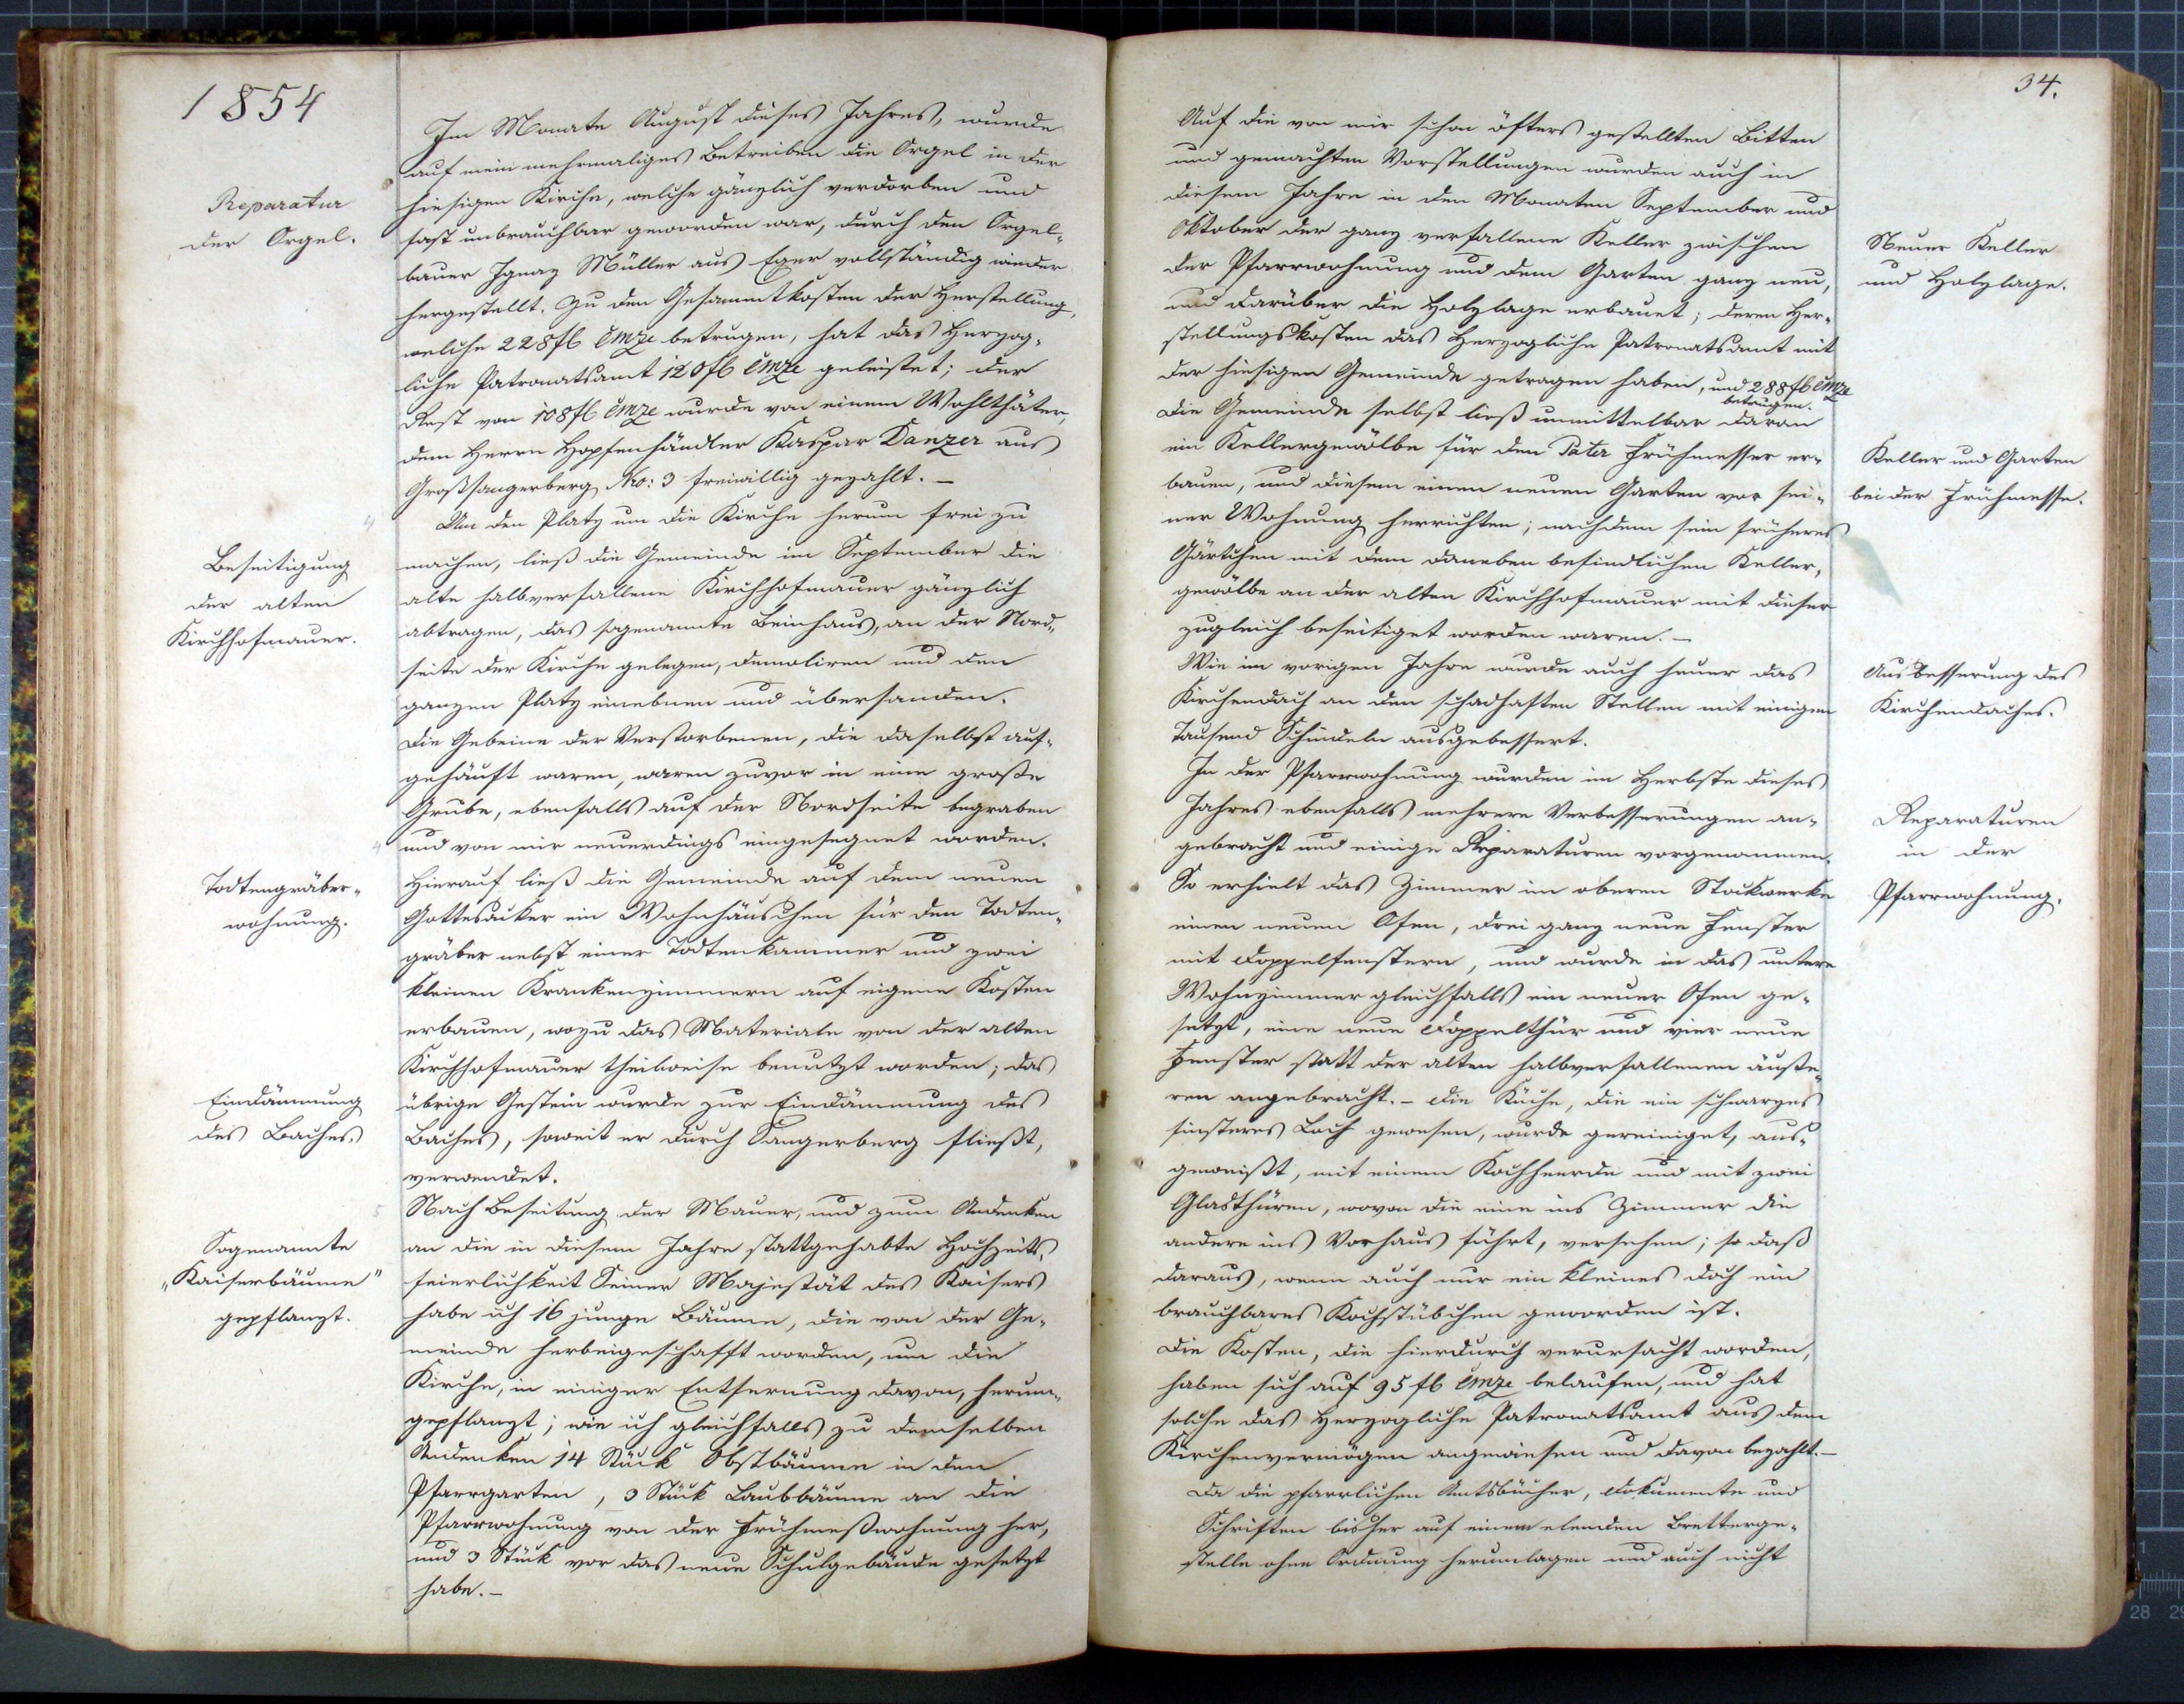 1854
Im Monate August dieses Jahres, wurde
auf mein mehrmaliges Betreiben die Orgel in der
Reparatur
der Orgel.
hiesigen Kirche, welche gänzlich verdorben und
fast unbrauchbar geworden war, durch den Orgel-
bauer Ignaz Müller aus Eger vollständig wieder
hergestellt. Zu den Gesammtkosten der Herstellung,
welche 228 fl Cmze betrugen, hat das Herzog-
liche Patronatsamt 120 fl Cmze geleistet; der
Rest von 108 fl Cmze wurde von einem Wohlthäter,
dem Herrn Hopfenhändler Kaspar Danzer aus
Großsangerberg Nro: 3 freiwillig gezahlt. –
Um den Platz um die Kirche herum frei zu
Beseitigung
der alten
Kirchhofmauer.
machen, ließ die Gemeinde im September die
alte halbverfallene Kirchhofmauer gänzlich
abtragen, das sogenannte Beinhaus, an der Nord-
seite der Kirche gelegen, demoliren und den
ganzen Platz einebnen und übersanden.
Die Gebeine der Verstorbenen, die daselbst auf-
gehäuft waren, waren zuvor in eine große
Grube, ebenfalls auf der Nordseite begraben
und von mir neuerdings eingesegnet worden.
Todtengräber-
wohnung.
Hierauf ließ die Gemeinde auf dem neuen
Gottesacker ein Wohnhäuschen für den Todten-
gräber nebst einer Todtenkammer und zwei
kleinen Krankenzimmern auf eigene Kosten
erbauen, wozu das Materiale von der alten
Kirchhofmauer theilweise benutzt worden; das
Eindämmung
des Baches.
übrige Gestein wurde zur Eindämmung des
Baches, soweit er durch Sangerberg fließt,
verwendet.
Nach Beseitung der Mauer, und zum Andenken
Sogenannte
„Kaiserbäume"
gepflanzt.
an die in diesem Jahre stattgehabte Hochzeits-
feierlichkeit Seiner Majestät des Kaisers
habe ich 16 junge Bäume, die von der Ge-
meinde herbeigeschafft worden, um die
Kirche, in einiger Entfernung davon, herum-
gepflanzt; wie ich gleichfalls zu demselben
Andenken 14 Stück Obstbäume in den
Pfarrgarten, 3 Stück Laubbäume an die
Pfarrwohnung von der Frühmeßwohnung her,
und 3 Stück vor das neue Schulgebäude gesetzt
habe. –
34.
Auf die von mir schon öfters gestellten Bitten
und gemachten Vorstellungen wurden auch in
diesem Jahre in den Monaten September und
Oktober der ganz verfallene Keller zwischen
Neuer Keller
und Holzlage.
der Pfarrwohnung und dem Garten ganz neu,
und darüber die Holzlage erbauet; deren Her-
stellungskosten das Herzogliche Patronatsamt mit
der hiesigen Gemeinde getragen haben, und 288 fl Cmze
betrugen.
Die Gemeinde selbst ließ unmittelbar daran
ein Kellergewölbe für den Pater Frühmesser er-
Keller und Garten
bei der Frühmesse.
bauen, und diesem einen neuen Garten vor sei-
ner Wohnung herrichten; nachdem sein früheres
Gärtchen mit dem daneben befindlichen Keller-
gewölbe an der alten Kirchhofmauer mit dieser
zugleich beseitiget worden waren. –
Wie im vorigen Jahre wurde auch heuer das
Ausbesserung des
Kirchendaches.
Kirchendach an den schadhaften Stellen mit einigen
Tausend Schindeln ausgebessert.
In der Pfarrwohnung wurden im Herbste dieses
Jahres ebenfalls mehrere Verbesserungen an-
Reparaturen
in der
Pfarrwohnung.
gebracht und einige Reparaturen vorgenommen.
So erhielt das Zimmer im oberen Stockwerke
einen neuen Ofen, drei ganz neue Fenster
mit Doppelfenstern, und wurde in das untere
Wohnzimmer gleichfalls ein neuer Ofen ge-
setzt, eine neue Doppelthür und vier neue
Fenster statt der alten halbverfallenen äuße-
ren angebracht. – Die Küche, die ein schwarzes
finsteres Loch gewesen, wurde gereiniget, aus-
geweißt, mit einem Kochheerde und mit zwei
Glasthüren, wovon die eine ins Zimmer die
andere ins Vorhaus führt, versehen; so daß
daraus, wenn auch nur ein kleines doch ein
brauchbares Kochstübchen geworden ist.
Die Kosten, die hierdurch verursacht worden,
haben sich auf 95 fl Cmze belaufen, und hat
solche das Herzogliche Patronatsamt aus dem
Kirchenvermögen angewiesen und davon bezahlt. –
Da die pfarrlichen Amtsbücher, Dokumente und
Schriften bisher auf einem elenden Bretterge-
stelle ohne Ordnung herumlagen und auch nicht